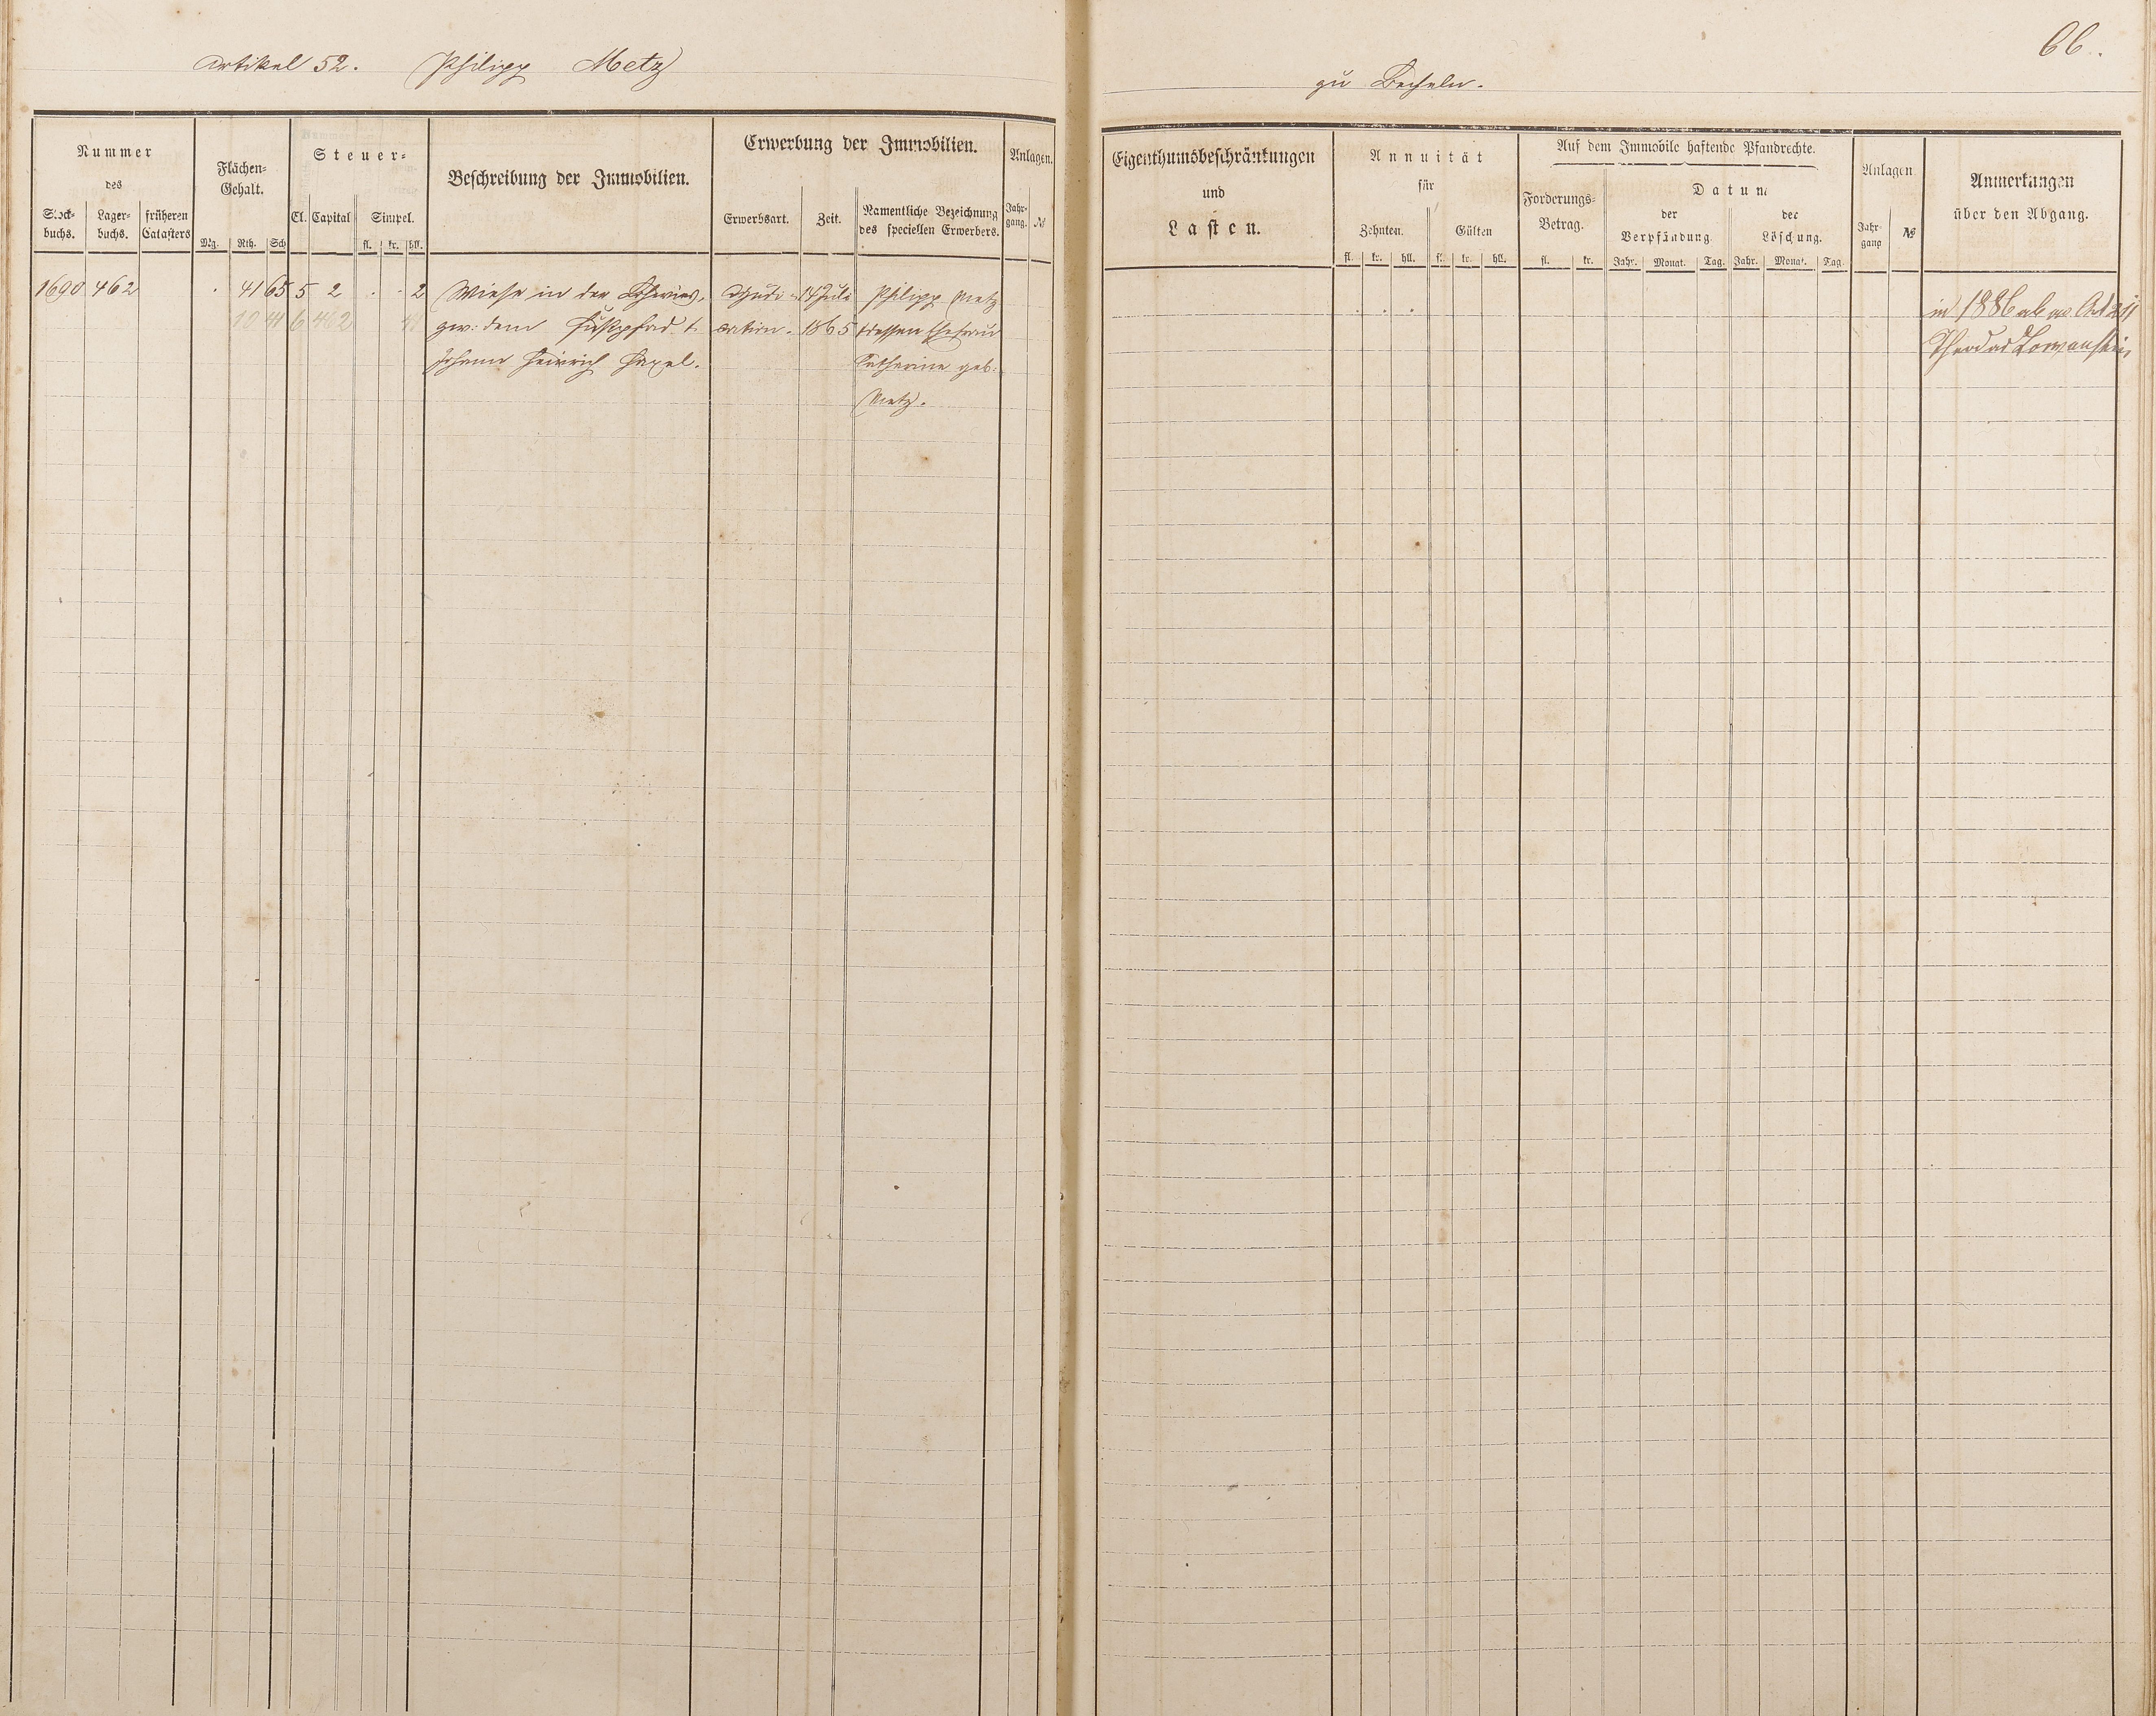 Artikel 52. Philipp Metz
zu Becheln.
66.
Nummer
des
Stock-
buchs.
Lager-
buchs.
früheren
Catasters
Flächen-
Gehalt.
Mg. Rth. Sch
Steuer-
Cl. Capital Simpel.
fl. kr. hll.
Beschreibung der Immobilien.
Erwerbung der Immobilien.
Erwerbsart. Zeit.
Namentliche Bezeichnung
des speciellen Erwerbers.
Anlagen.
Jahr-
gang. №
Eigenthumsbeschränkungen
und
Lasten.
Annuität
für
Zehnten. Gülten
fl. kr. hll. fl. kr. hll.
Auf dem Immobile haftende Pfandrechte.
Forderungs-
Betrag.
fl. kr.
Datum
der
Verpfändung
der
Löschung.
Jahr. Monat. Tag. Jahr. Monat. Tag.
Anlagen
Jahr-
gang №
Anmerkungen
über den Abgang.
1690 462 . 41 65 5 2 . . 2 Wiese in der Adjudi- 14 Juli Philipp Metz
10 41 6 462 41 gew: dem Fußpfad u. cation. 1865 dessen Ehefrau
Johann Heinrich Katharine geb:
Metz.
in 1886 ab Art 211
Theodor Löwenstein